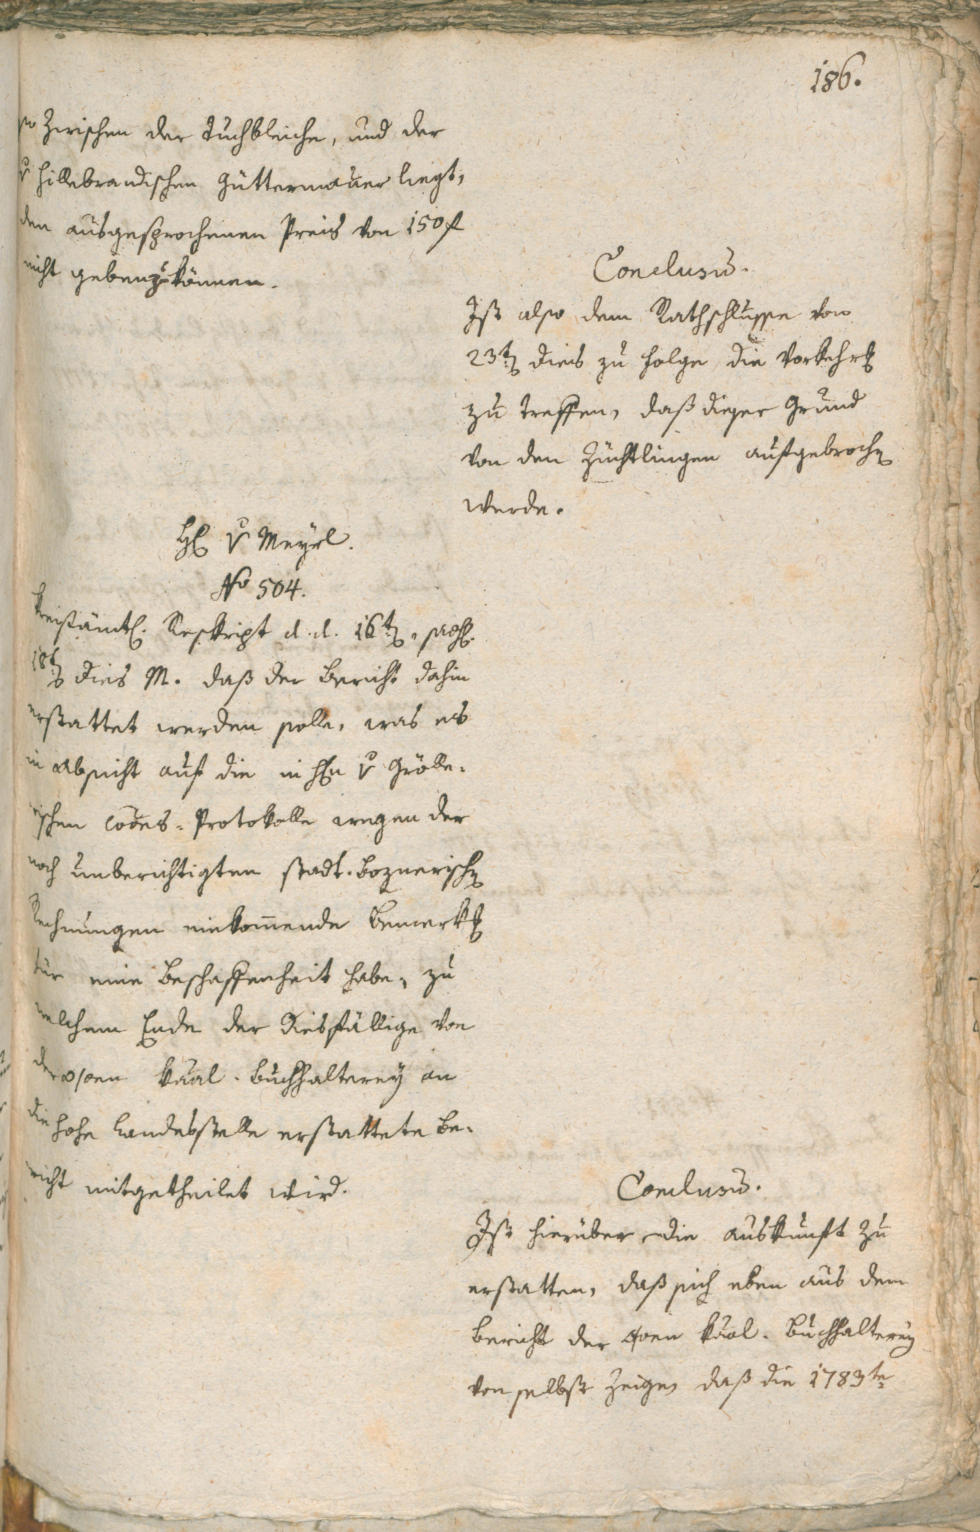 186.
so zwischen der Tuchbleiche, und der
v Hillebrandischen Güttermauer liegt,
den ausgesprochenen Preis von 150 f
nicht geben zu können.
Conclusum.
Ist also dem Rathschlusse vom
23t dies zu folge die Vorkehr
zu treffen, daß dieser Grund
von den Züchtlingen aufgebroch
werde.
H v Meyrl.
No 504.
Kreisämtl. Reskript d. d. 16t, 
18t dies M. daß der Bericht dahin
erstattet werden solle, was es
in Absicht auf die in Hn v Grölle-
rischen Protokolle wegen der
noch unberichtigten stadt-boznerisch
Rechnungen einkom̄ende Bemerk
für eine Beschaffenheit habe, zu
welchem Ende der diesfällige von
der Buchhalterey an
die hohe Landesstelle erstattete Be-
richt mitgetheilet wird.
Conclusum.
Ist hierüber die Auskunft zu
erstatten, daß sich eben aus dem
Bericht der Buchhalterey
von selbst zeige, daß die 1783te